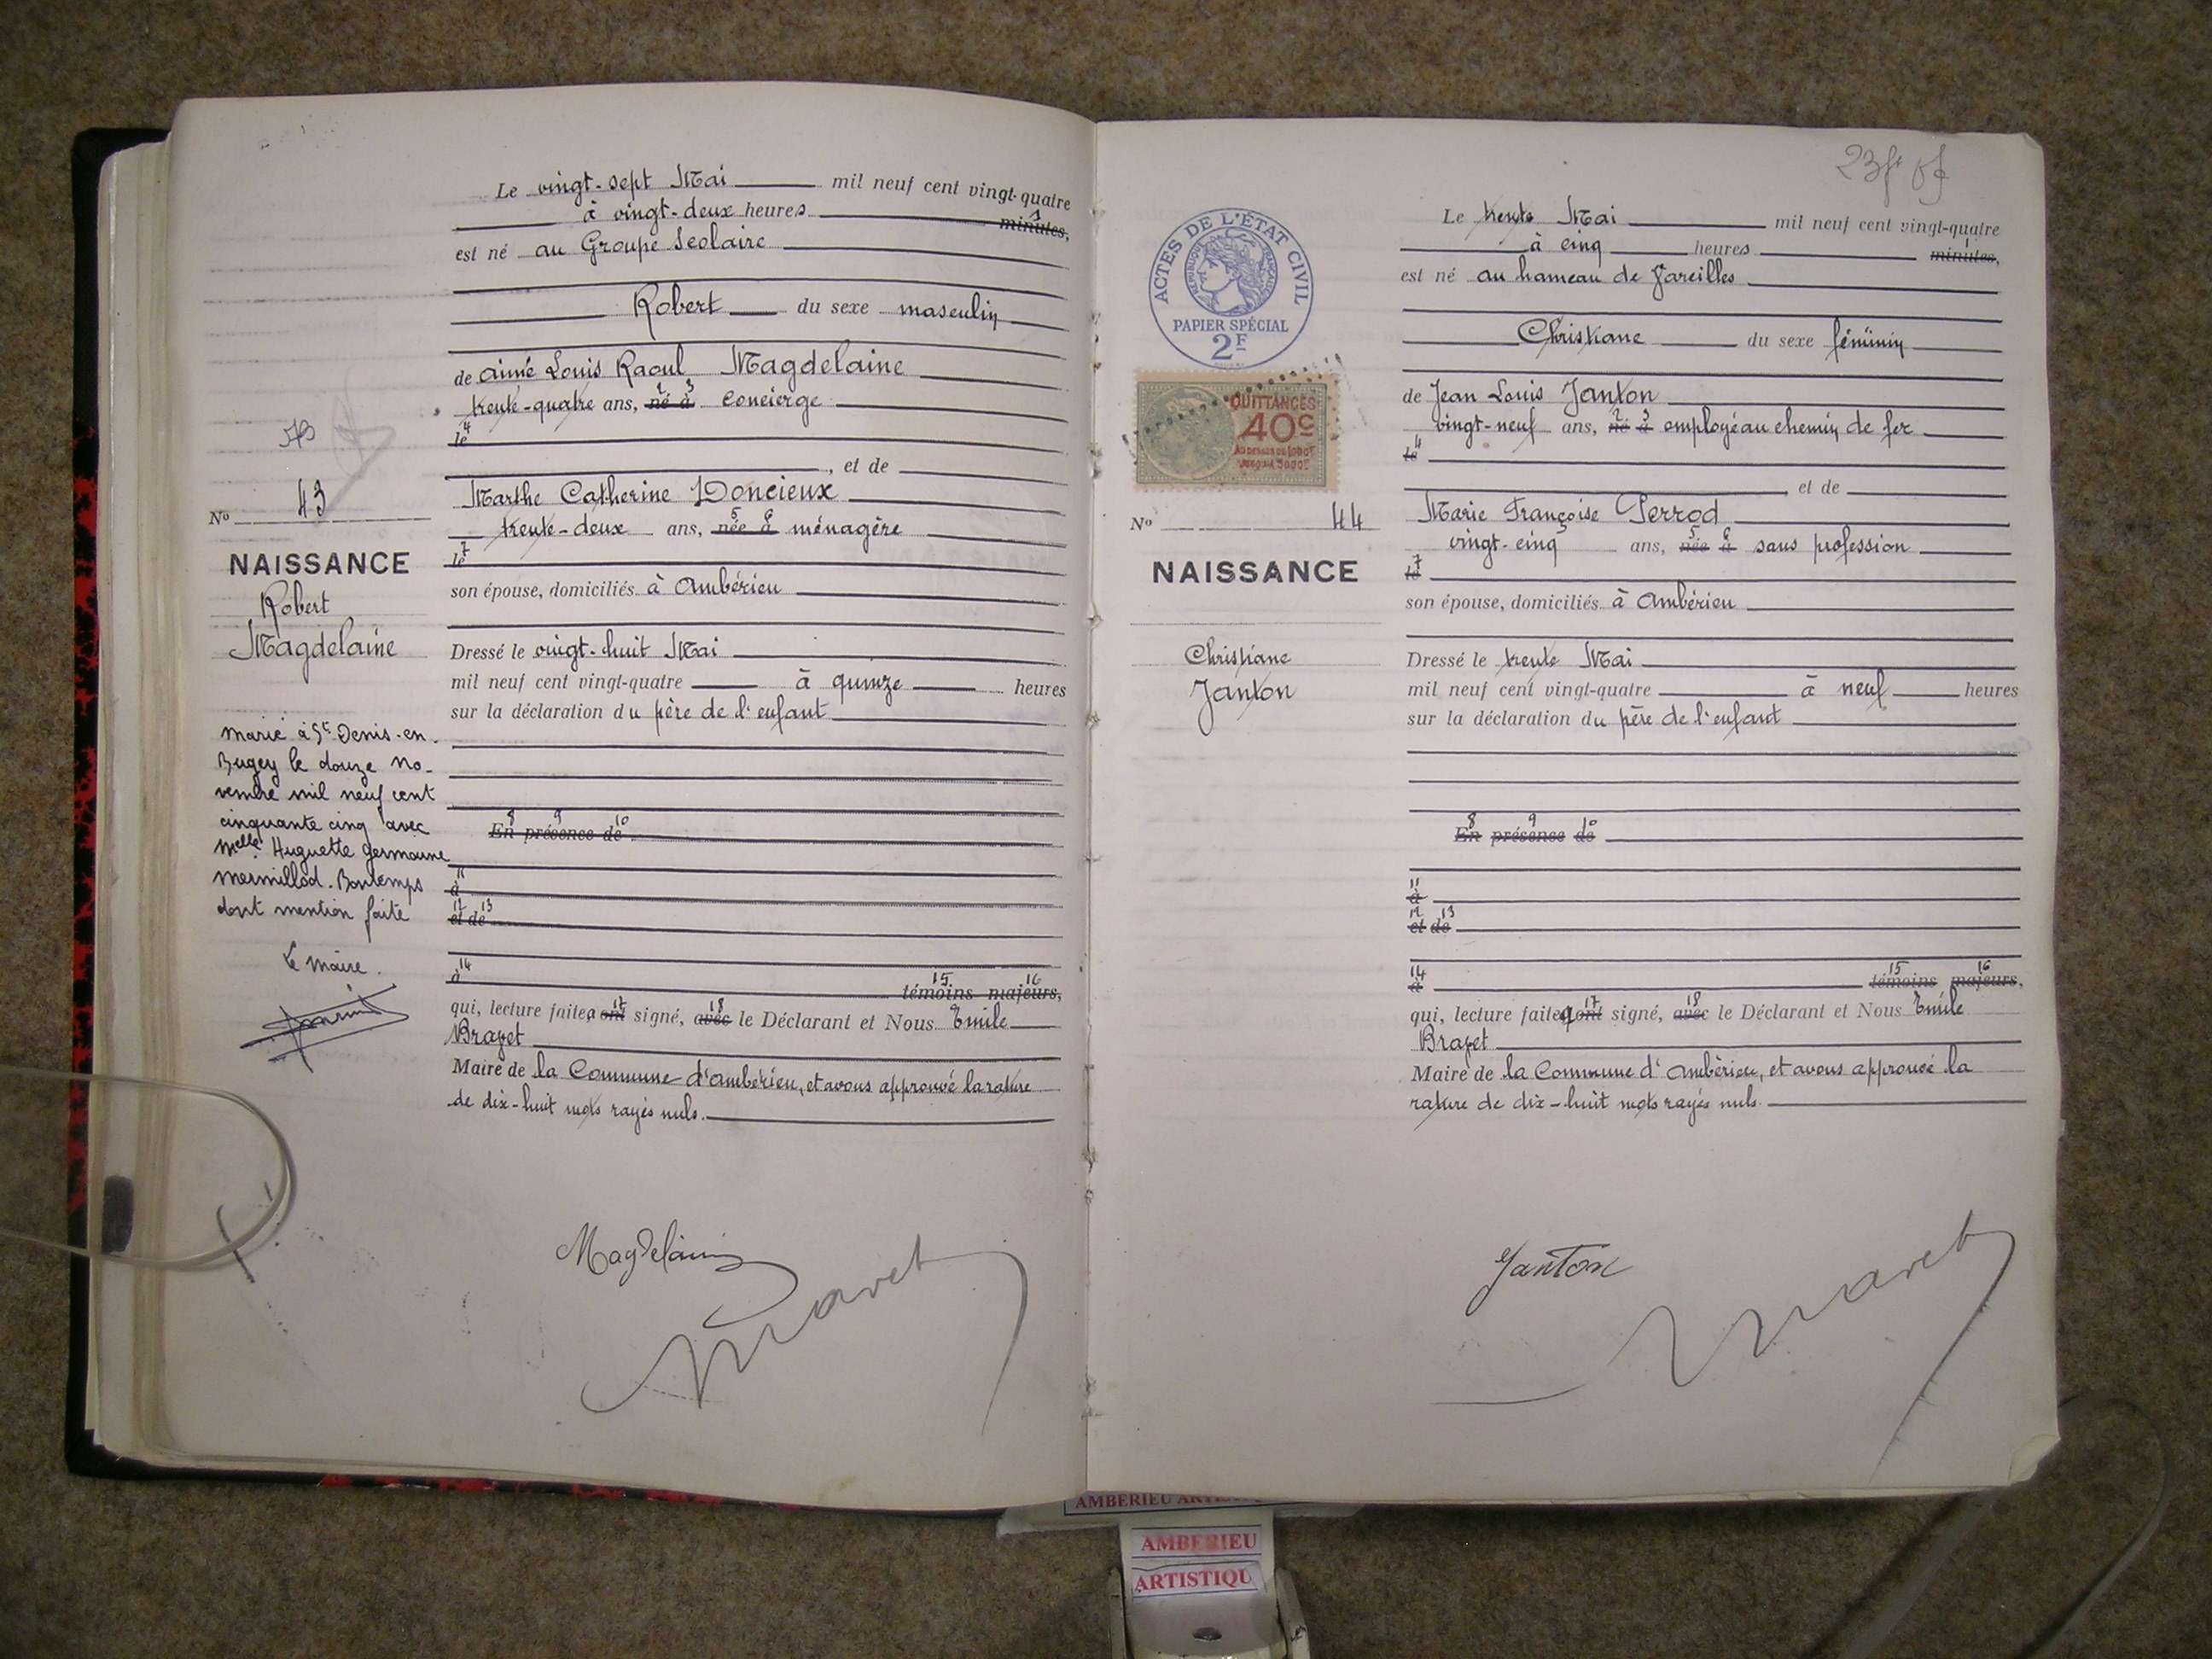 Le vingt-sept Mai mil neuf cent vingt-quatre
à vingt-deux heures minutes,
est né au Groupe Scolaire
Robert du sexe masculin
de Aimé Louis Raoul Magdelaine
trente-quatre ans, né à concierge
le
, et de
Marthe Catherine Doncieux
trente-deux ans, née à ménagère
le
son épouse, domiciliés à Ambérieu
Dressé le vingt-huit Mai
mil neuf cent vingt-quatre à quinze heures
sur la déclaration du père de l'enfant
En présence de
à
et de
à témoins majeurs,
qui, lecture faite, a ont signé, avec le Déclarant et Nous Emile
Bravet
Maire de la Commune d'Ambérieu, et avons approuvé la rature
de dix-huit mots rayés nuls.
Magdelaine
Bravet
No 43
NAISSANCE
Robert
Magdelaine
marié à St Denis-en-
Bugey le douze no-
vembre mil neuf cent
cinquante cinq avec
Melle Huguette Germaine
Mermillod-Bontemps
dont mention faite
Le Maire.
ACTES DE L'ÉTAT CIVIL
RÉPUBLIQUE FRANÇAISE
PAPIER SPÉCIAL
2F
QUITTANCES
40c
AU DESSUS DE 1000F
JUSQU'A 3000F
No 44
NAISSANCE
Christiane
Janton
Le trente Mai mil neuf cent vingt-quatre
à cinq heures minutes,
est né au hameau de Vareilles
Christiane du sexe féminin
de Jean Louis Janton
vingt-neuf ans, né à employé au chemin de fer
le
et de
Marie Françoise Perrod
vingt-cinq ans, née à sans profession
le
son épouse, domiciliés à Ambérieu
Dressé le trente Mai
mil neuf cent vingt-quatre à neuf heures
sur la déclaration du père de l'enfant
En présence de
à
et de
à témoins majeurs,
qui, lecture faite, a ont signé, avec le Déclarant et Nous Emile
Bravet
Maire de la Commune d'Ambérieu, et avons approuvé la
rature de dix-huit mots rayés nuls.
Janton
Bravet
AMBERIEU
ARTISTIQU